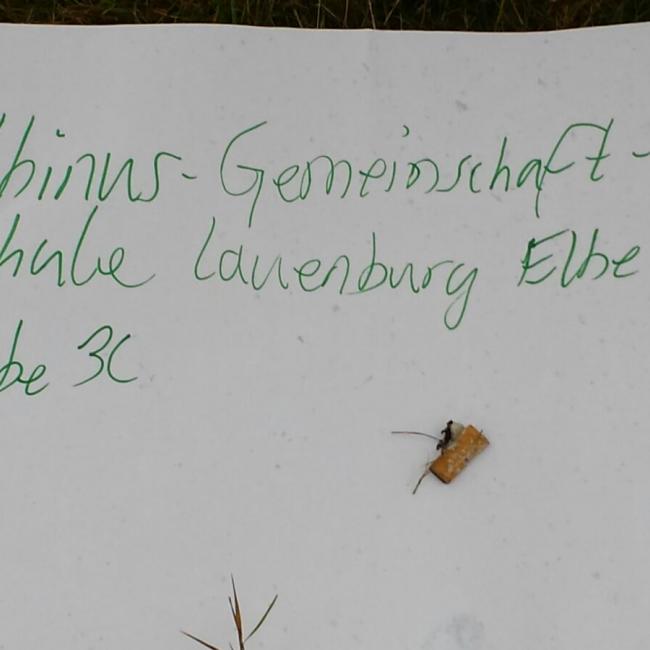 binus-Gemeinschaft-
hule Lauenburg Elbe
be 3C